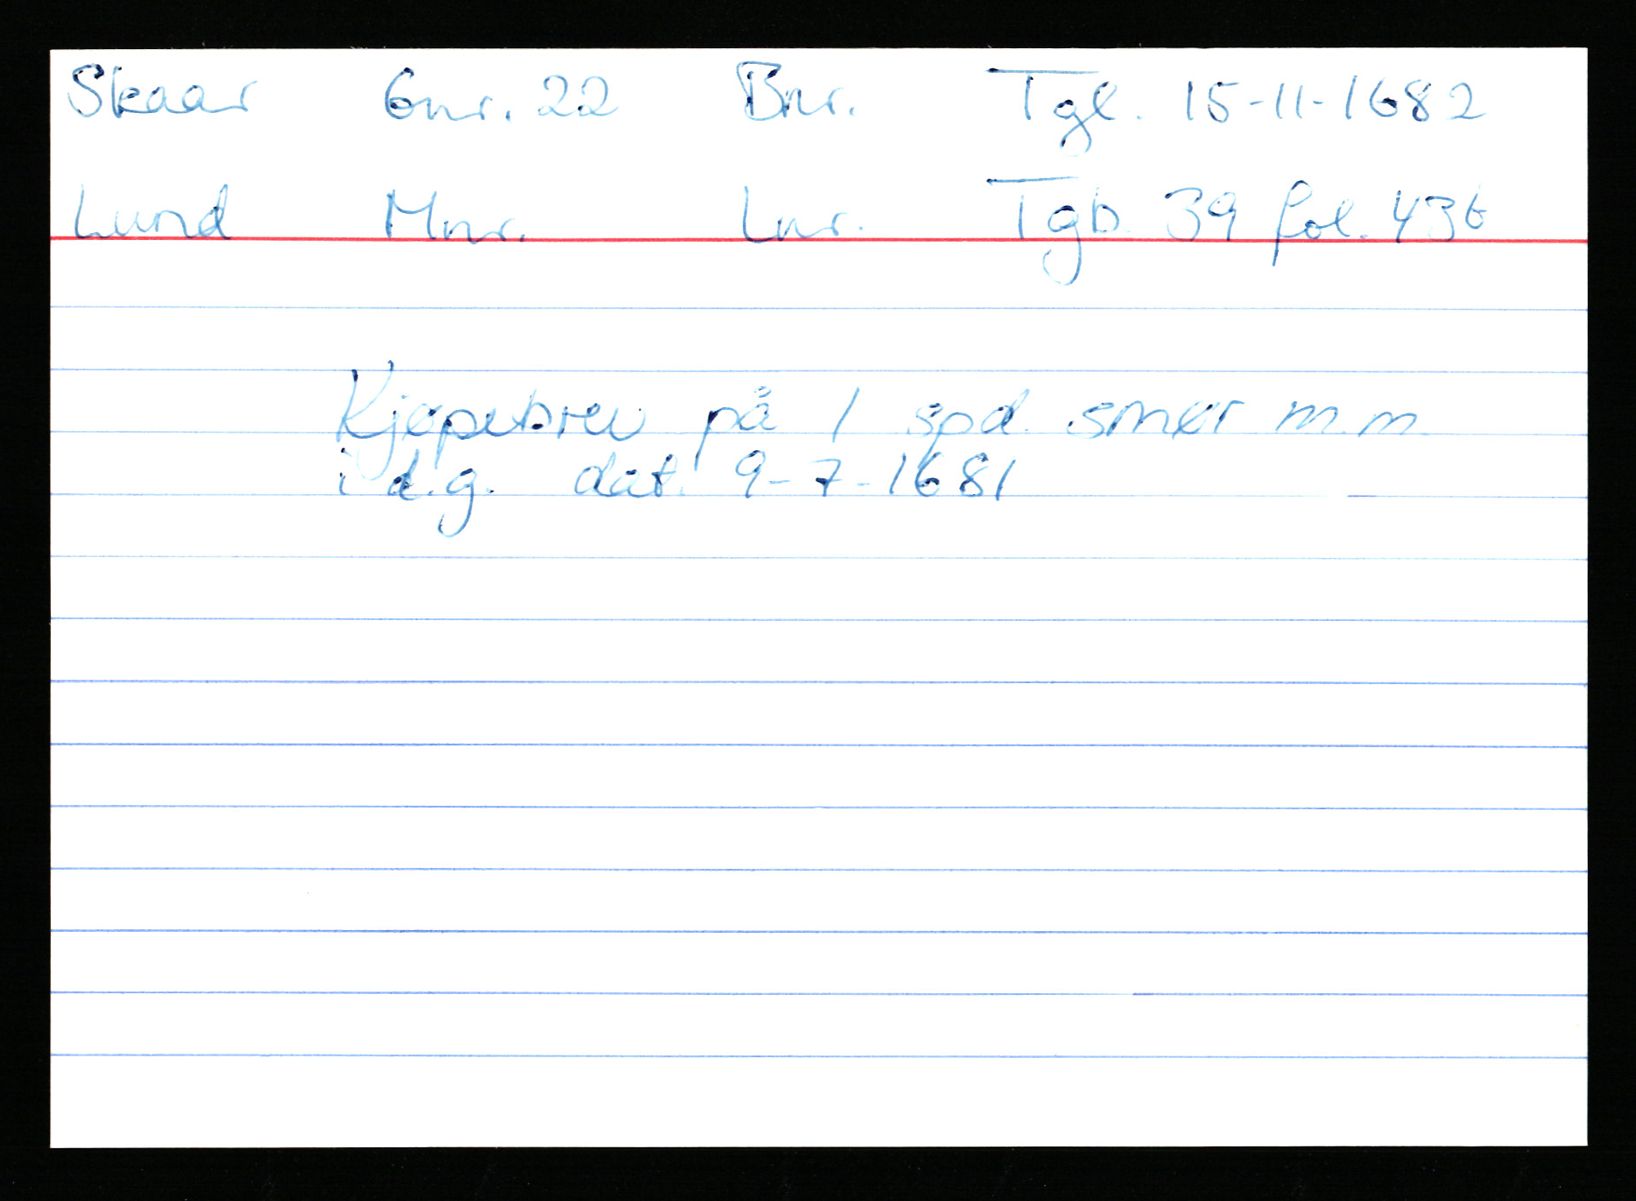 Skaar Gnr. 22 Bnr. Tgl. 15-11-1682
Lund Mnr. Lnr. Tgb. 39 fol. 436
Kjøpebrev på 1 spd. smør m.m.
i d.g. dat. 9-7-1681